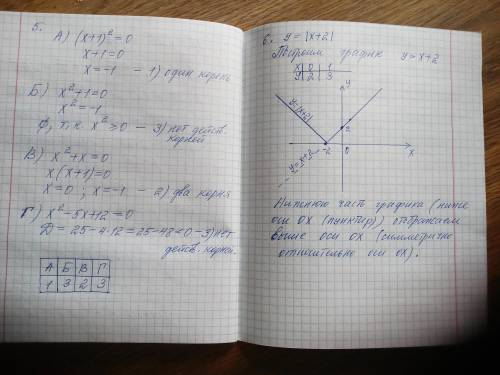 5.
А) (x+1)² = 0
x+1=0
x=-1 - 1) один корень
Б) x²+1=0
x²=-1
∅, т.к x²≥0 - 3) нет действ.
корней
В) x²+x=0
x(x+1)=0
x=0; x=-1 - 2) два корня
Г) x²-5x+12=0
Д=25-4·12=25-48<0 - 3) нет
действ. корней.
А Б В Г
1 3 2 3
6. y=|x+2|
Построим график y=x+2
x 0 1
y 2 3
y
y=|x+2|
2
-2 0 x
y=x+2
Нижнюю часть графика (ниже
оси OX (пунктир)) отображаем
выше оси OX (симметрично
относительно оси OX).